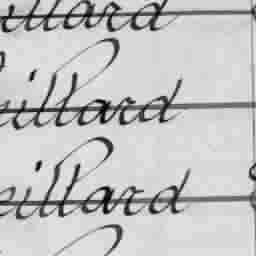 illard
illard
eillard